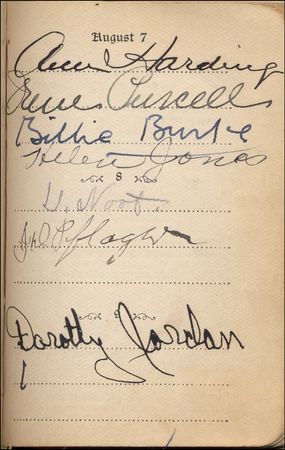 August 7
Ann Harding
Irene Purcell
Billie Burke
Helen Jones
8
9
Dorothy Jordan